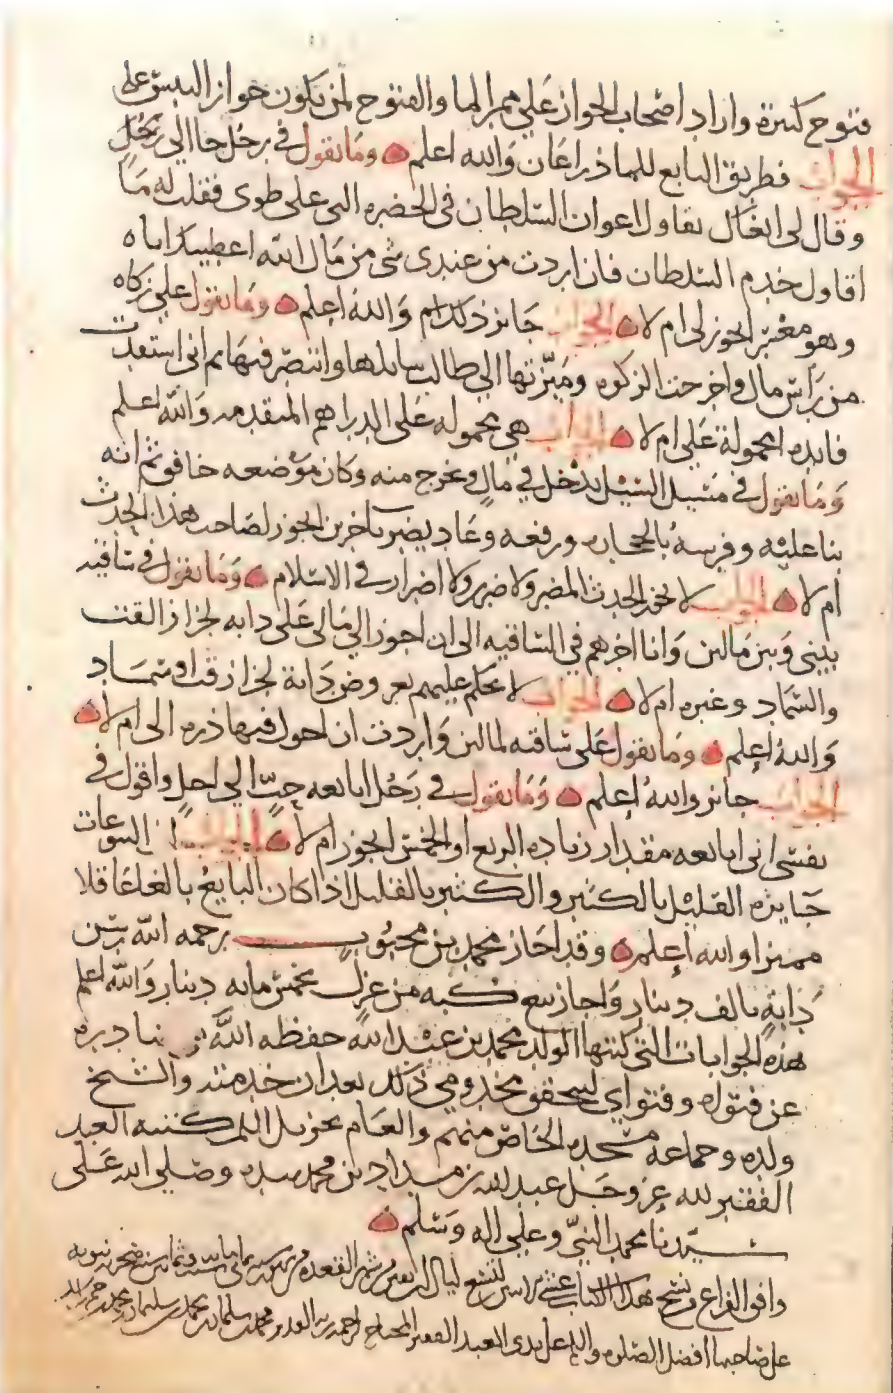 فتوح كثيرة واراد اصحاب الجواز على ممر الما والفتوح لمن يكون جواز البيس على
الجواب فطريق التابع للماذراعان والله اعلم وما تقول في رجل جا الى رجل
وقال لي انك تقاول اعوان السلطان في الحضره التى على طوى فقلت له ما
اقاول خدم السلطان فان اردت من عندى شى من مال الله اعطيتك اياه
وهو مغتبر الجوز لى ام لا الجواب جايز ذلك والله اعلم وما تقول على زكاه
من راس مال واخرجت الزكوه وميزتها الى طالب سايلها وانتصر فيها ثم انى استفدت
فايده امحمولة على ام لا الجواب هى محموله على الدراهم المتقدمه والله اعلم
وما تقول في مسيل السيل يدخل في مال ويخرج منه وكان موضعه خافق ثم انه
بنا عليه وفرسه بالحجاره ورفعه وعاد يضر بآخرين الجوز لصاحب هذا الحدث
ام لا الجواب لا يجوز الحدث المضر ولا ضرر ولا اضرار في الاسلام وما تقول في ساقيه
بينى وبين مالين وانا اخرهم في الساقيه الى ان اجوز الى مالى على دابه لجزاز القت
والسماد وغيره ام لا الجواب لا يحكم عليهم بعروض دابة لجزاز قت او سماد
والله اعلم وما تقول على ساقيه لمالين واردت ان احول فيها ذره الى ام لا
الجواب جايز والله اعلم وما تقول في رجل ابايعه حبّا الى اجل واقول في
نفسى انى ابايعه مقدار زياده الربع او الخمس الجوز ام لا الجواب ان البيوعات
جايزه القليل بالكثير والكثير بالقليل اذا كان البايع بالغا عاقلا
مميزا والله اعلم وقد اجاز محمد بن محبوب رحمه الله رسن
دابة بالف دينار واجاز بيع كبه من غزل بخمس مايه دينار والله اعلم
هذه الجوابات التى كتبها الولد محمد بن عبد الله حفظه الله نادره
عن فتوله وفتواي ليحقق مخدومي ذلك بعد ان خدمته والشيخ
ولده وجماعه مسجده الخاص منهم والعام بحزيل كتبه العبد
الفقير لله عز وجل عبد لله بن مداد بن محمد بيده وصلى الله على
سيدنا محمد النبيّ وعلى اله وسلم
وافق الفراغ من نسخ هذا الكتاب لتسع ليال شهر القعده من سنه هجريه نبويه
على صاحبها افضل الصلوه والسلم على يدى العبد الفقير المحتاج لرحمه ربه القدير محمد بن سليمان بن محمد